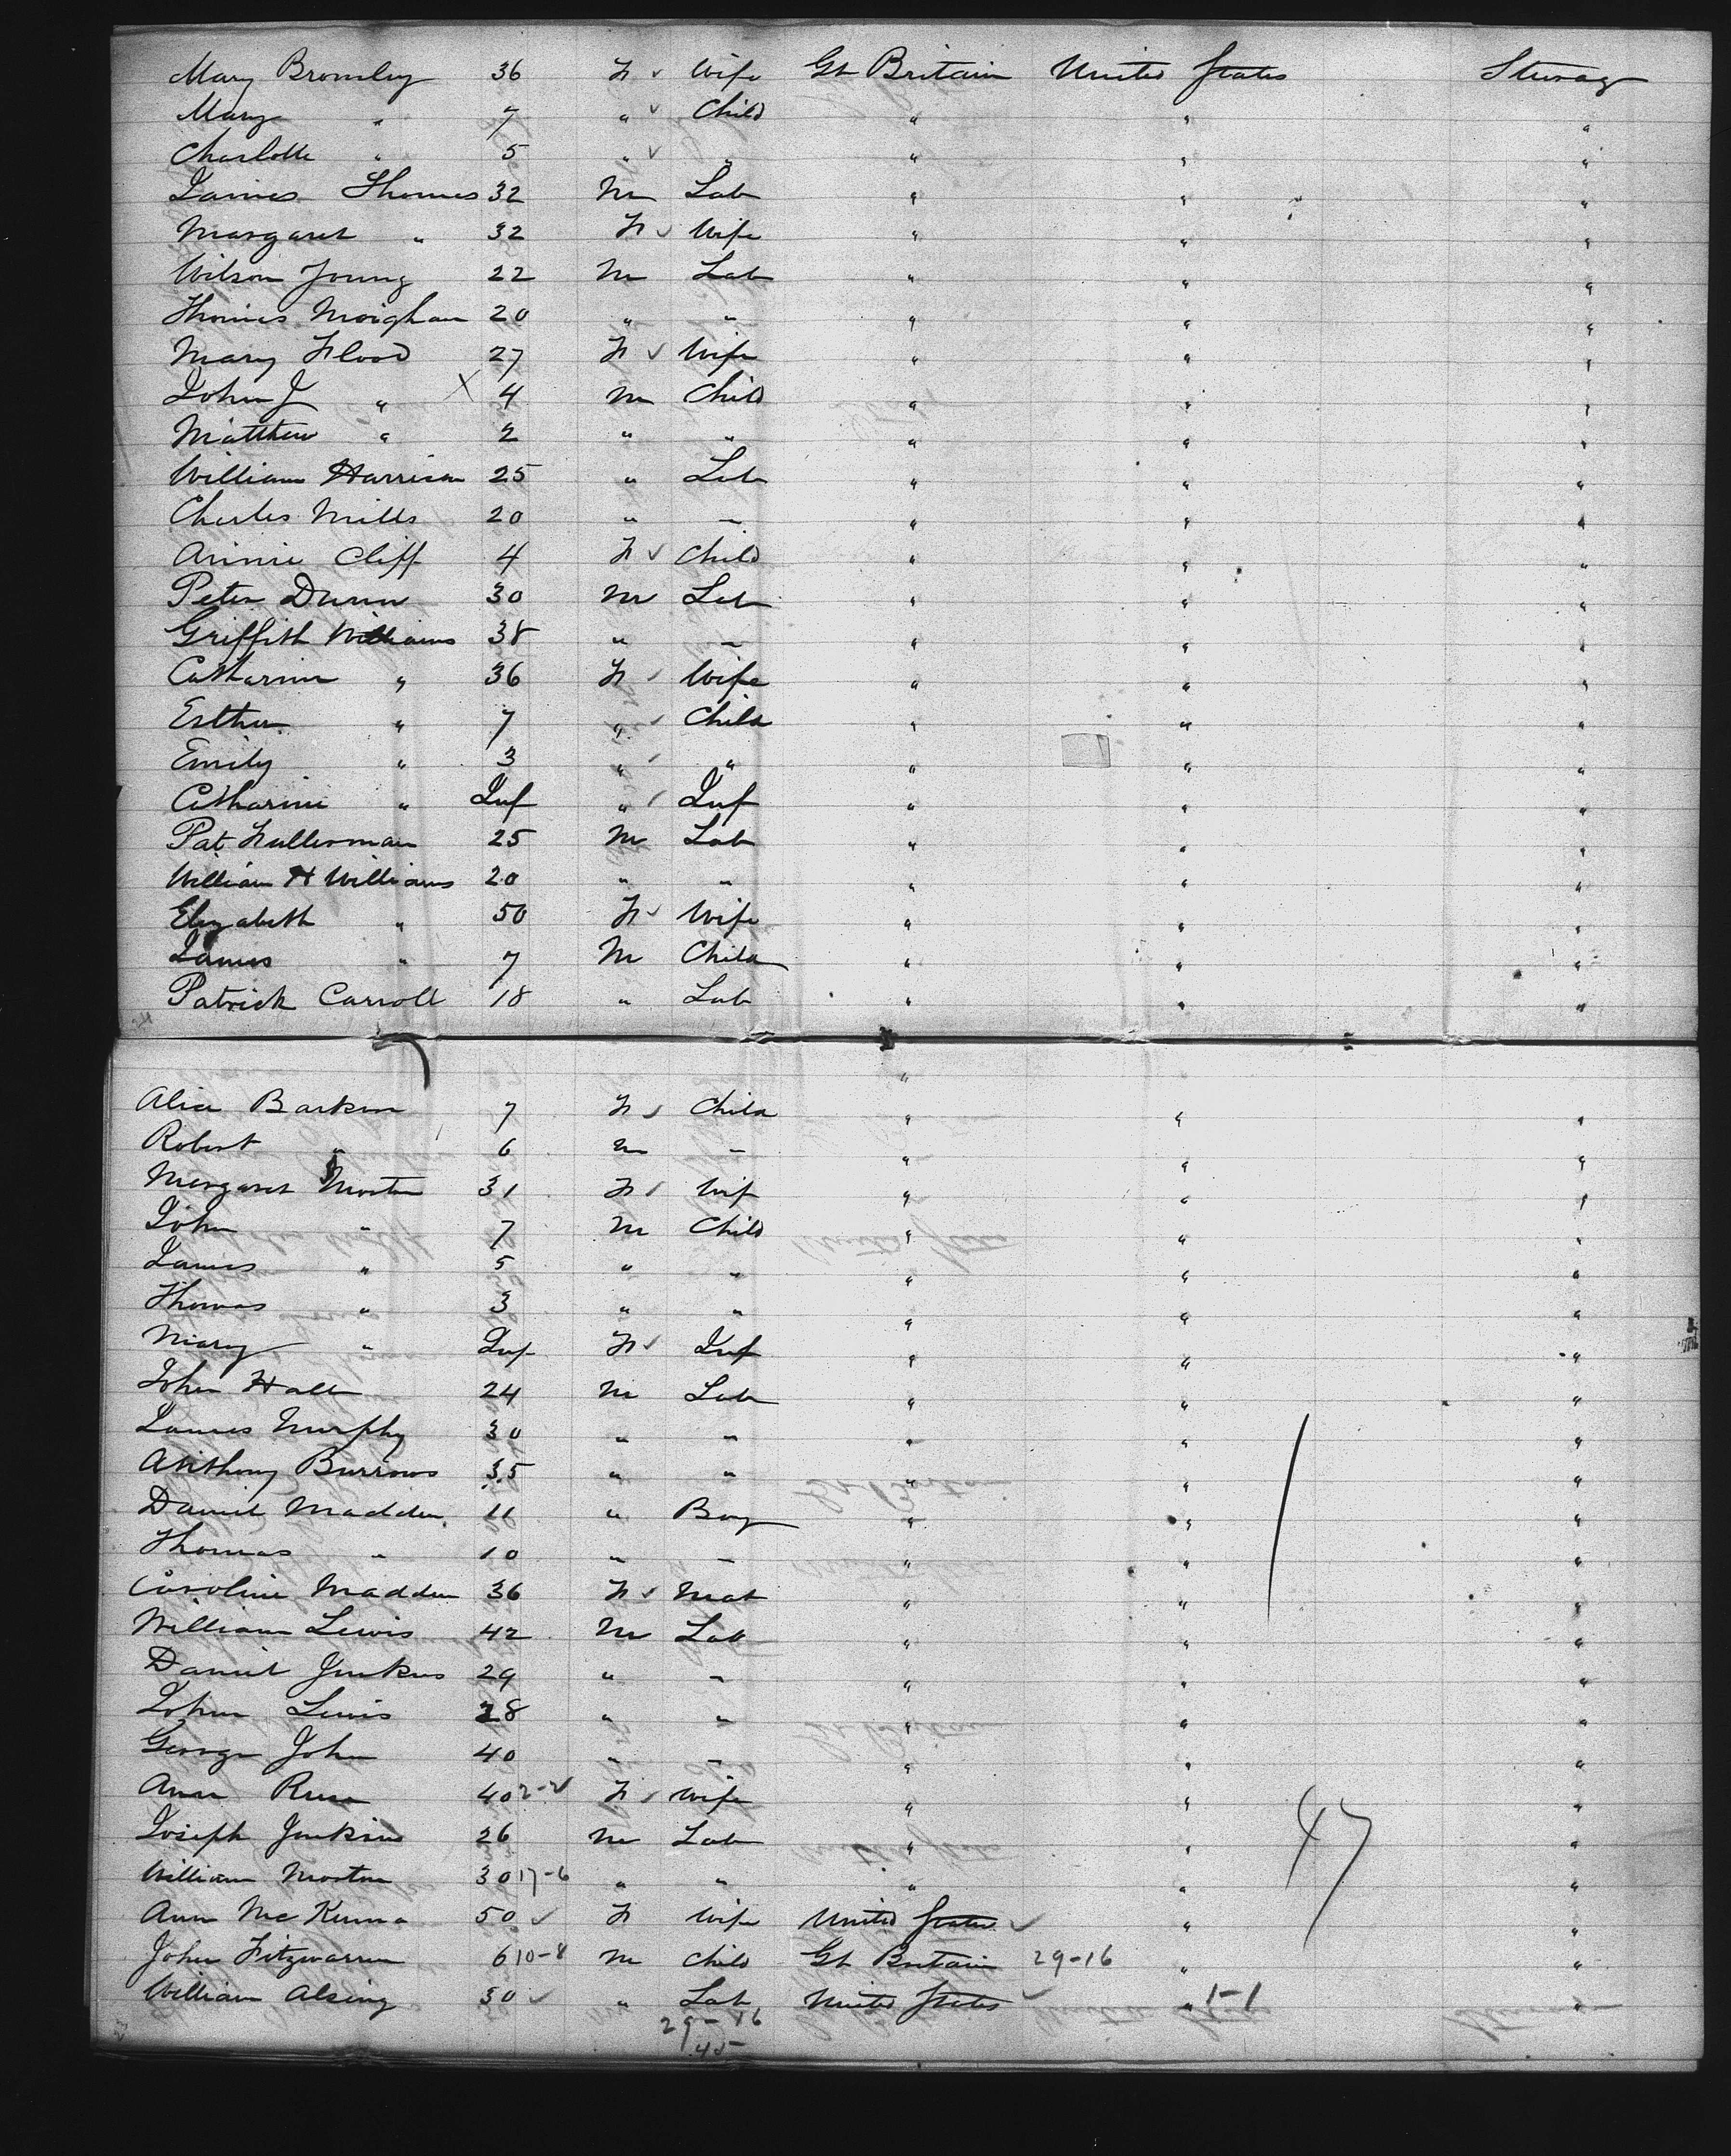 Mary Bromley 36 F ✓ Wife Gt Britain United States Steerag
Mary " 7 " ✓ Child " " "
Charlotte " 5 " ✓ " " " "
James Thomas 32 M Lab " " "
Margaret " 32 F ✓ Wife " " "
Wilson Young 22 M Lab " " "
Thomas Moighan 20 " " " " "
Mary Flood 27 F ✓ Wife " " "
John J " X 4 M Child " " "
Matthew " 2 " " " " "
William Harrison 25 " Lab " " "
Charles Mills 20 " " " " "
Annie Cliff 4 F ✓ Child " " "
Peter Dunn 30 M Lab " " "
Griffith Williams 38 " " " " "
Catharine " 36 F ✓ Wife " " "
Esther " 7 " ✓ Child " " "
Emily " 3 " ✓ " " " "
Catharine " Inf " ✓ Inf " " "
Pat Fullerman 25 M Lab " " "
William H Williams 20 " " " " "
Elizabeth " 50 F ✓ Wife " " "
James " 7 M Child " " "
Patrick Carroll 18 " Lab " " "
24
"
Alice 7 F ✓ Child " " "
Robert " 6 M " " " "
Margaret Morton 31 F ✓ Wif " " "
John " 7 M Child " " "
James " 5 " " " " "
Thomas " 3 " " " " "
Mary " Inf F ✓ Inf " " "
John Hall 24 M Lab " " "
James Murphy 30 " " " " "
Anthony Burrows 35 " " " " "
Daniel Madden 11 " Boy " " "
Thomas " 10 " " " " "
Caroline Madden 36 F ✓ Mat " " "
William Lewis 42 M Lab " " "
Daniel Jenkins 29 " " " " "
John Lewis 28 " " " " "
George John 40 " " " " "
Ann 40 2-2 F ✓ Wife " " "
Joseph Jenkins 26 M Lab " " "
47
William Morton 30 17-6 " " " " "
Ann McKenna 50 ✓ F Wife United States ✓ " "
John Fitzwarren 6 10-8 M Child Gt Britain 29-16 " "
William Alsing 30 ✓ " Lab United States ✓ " 1-1 "
29-16
45
23